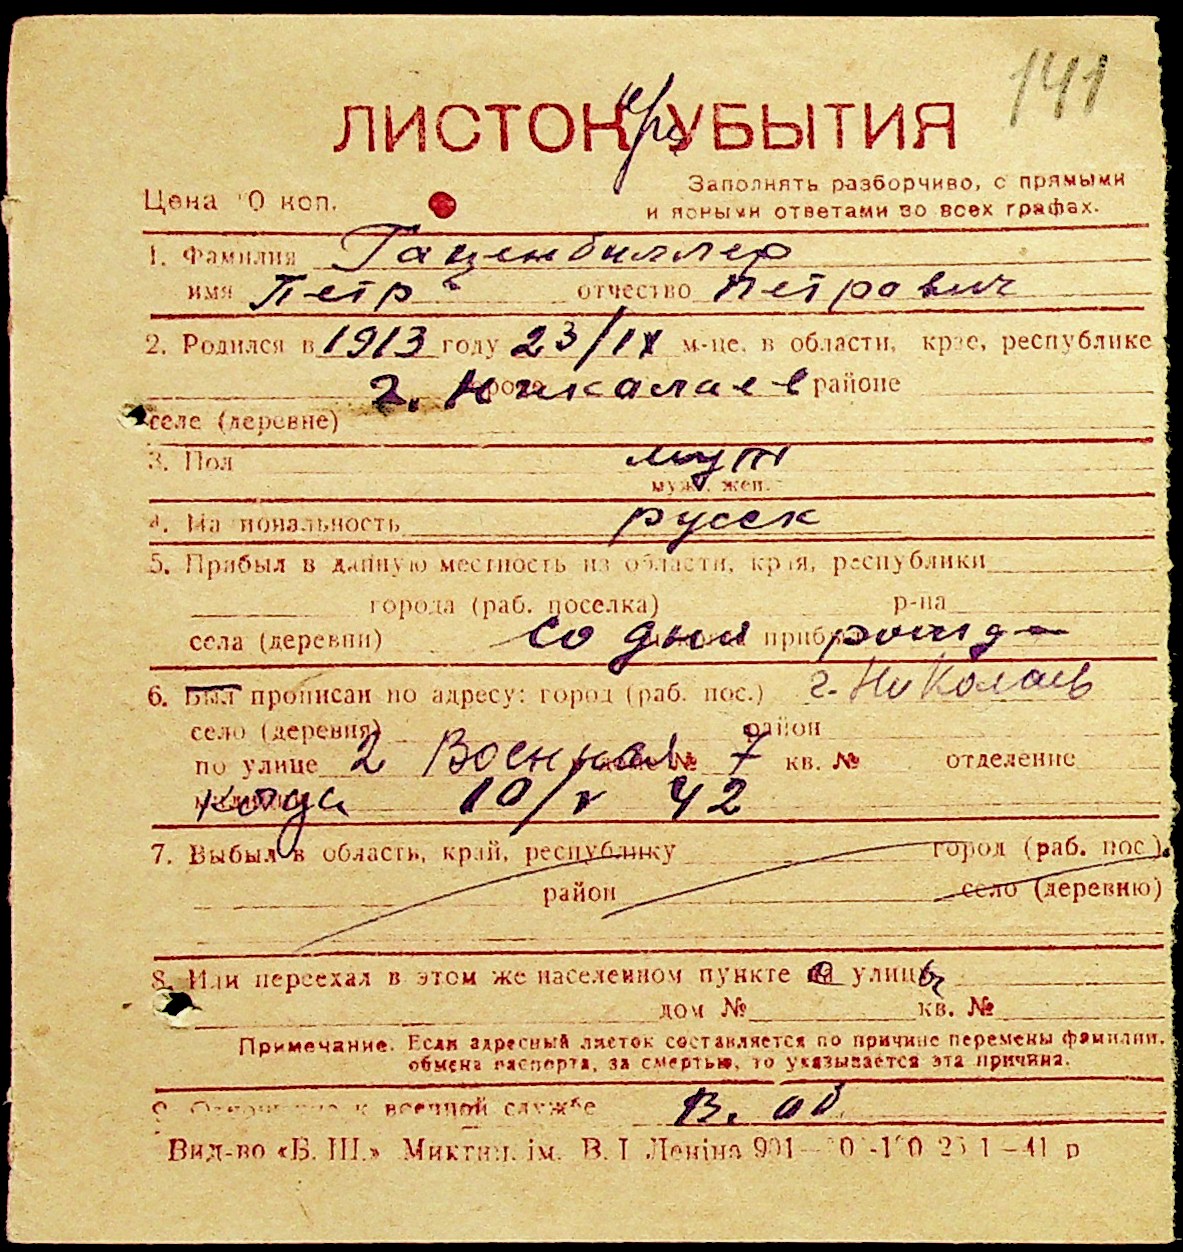 141
ЛИСТОК УБЫТИЯ
Цена 0 коп.
Заполнять разборчиво, с прямыми
и ясными ответами во всех графах.
1. Фамилия Гаценбиллер
имя Петр отчество Петрович
2. Родился в 1913 году 23/IX м-це, в области, крае, республике
г. Никалаев районе
селе (деревне)
3. Пол муж
муж., жен.
4. Национальность русск
5. Прибыл в данную местность из области, края, республики
города (раб. поселка) р-на
села (деревни) со дня рожд
6. Был прописан по адресу: город (раб. пос.) г. Николаев
село (деревня) район
по улице 2 Военная № 7 кв. № отделение
когда 10/V 42
7. Выбыл в область, край, республику город (раб. пос.)
район село (деревню)
8. Или переехал в этом же населенном пункте на улицу
дом № кв. №
Примечание. Если адресный листок составляется по причине перемены фамилии,
обмена паспорта, за смертью, то указывается эта причина.
9. Отношение к военной службе В. об
Вид-во «Б. Ш.» Микт ім. В. І Леніна 901— 41 р